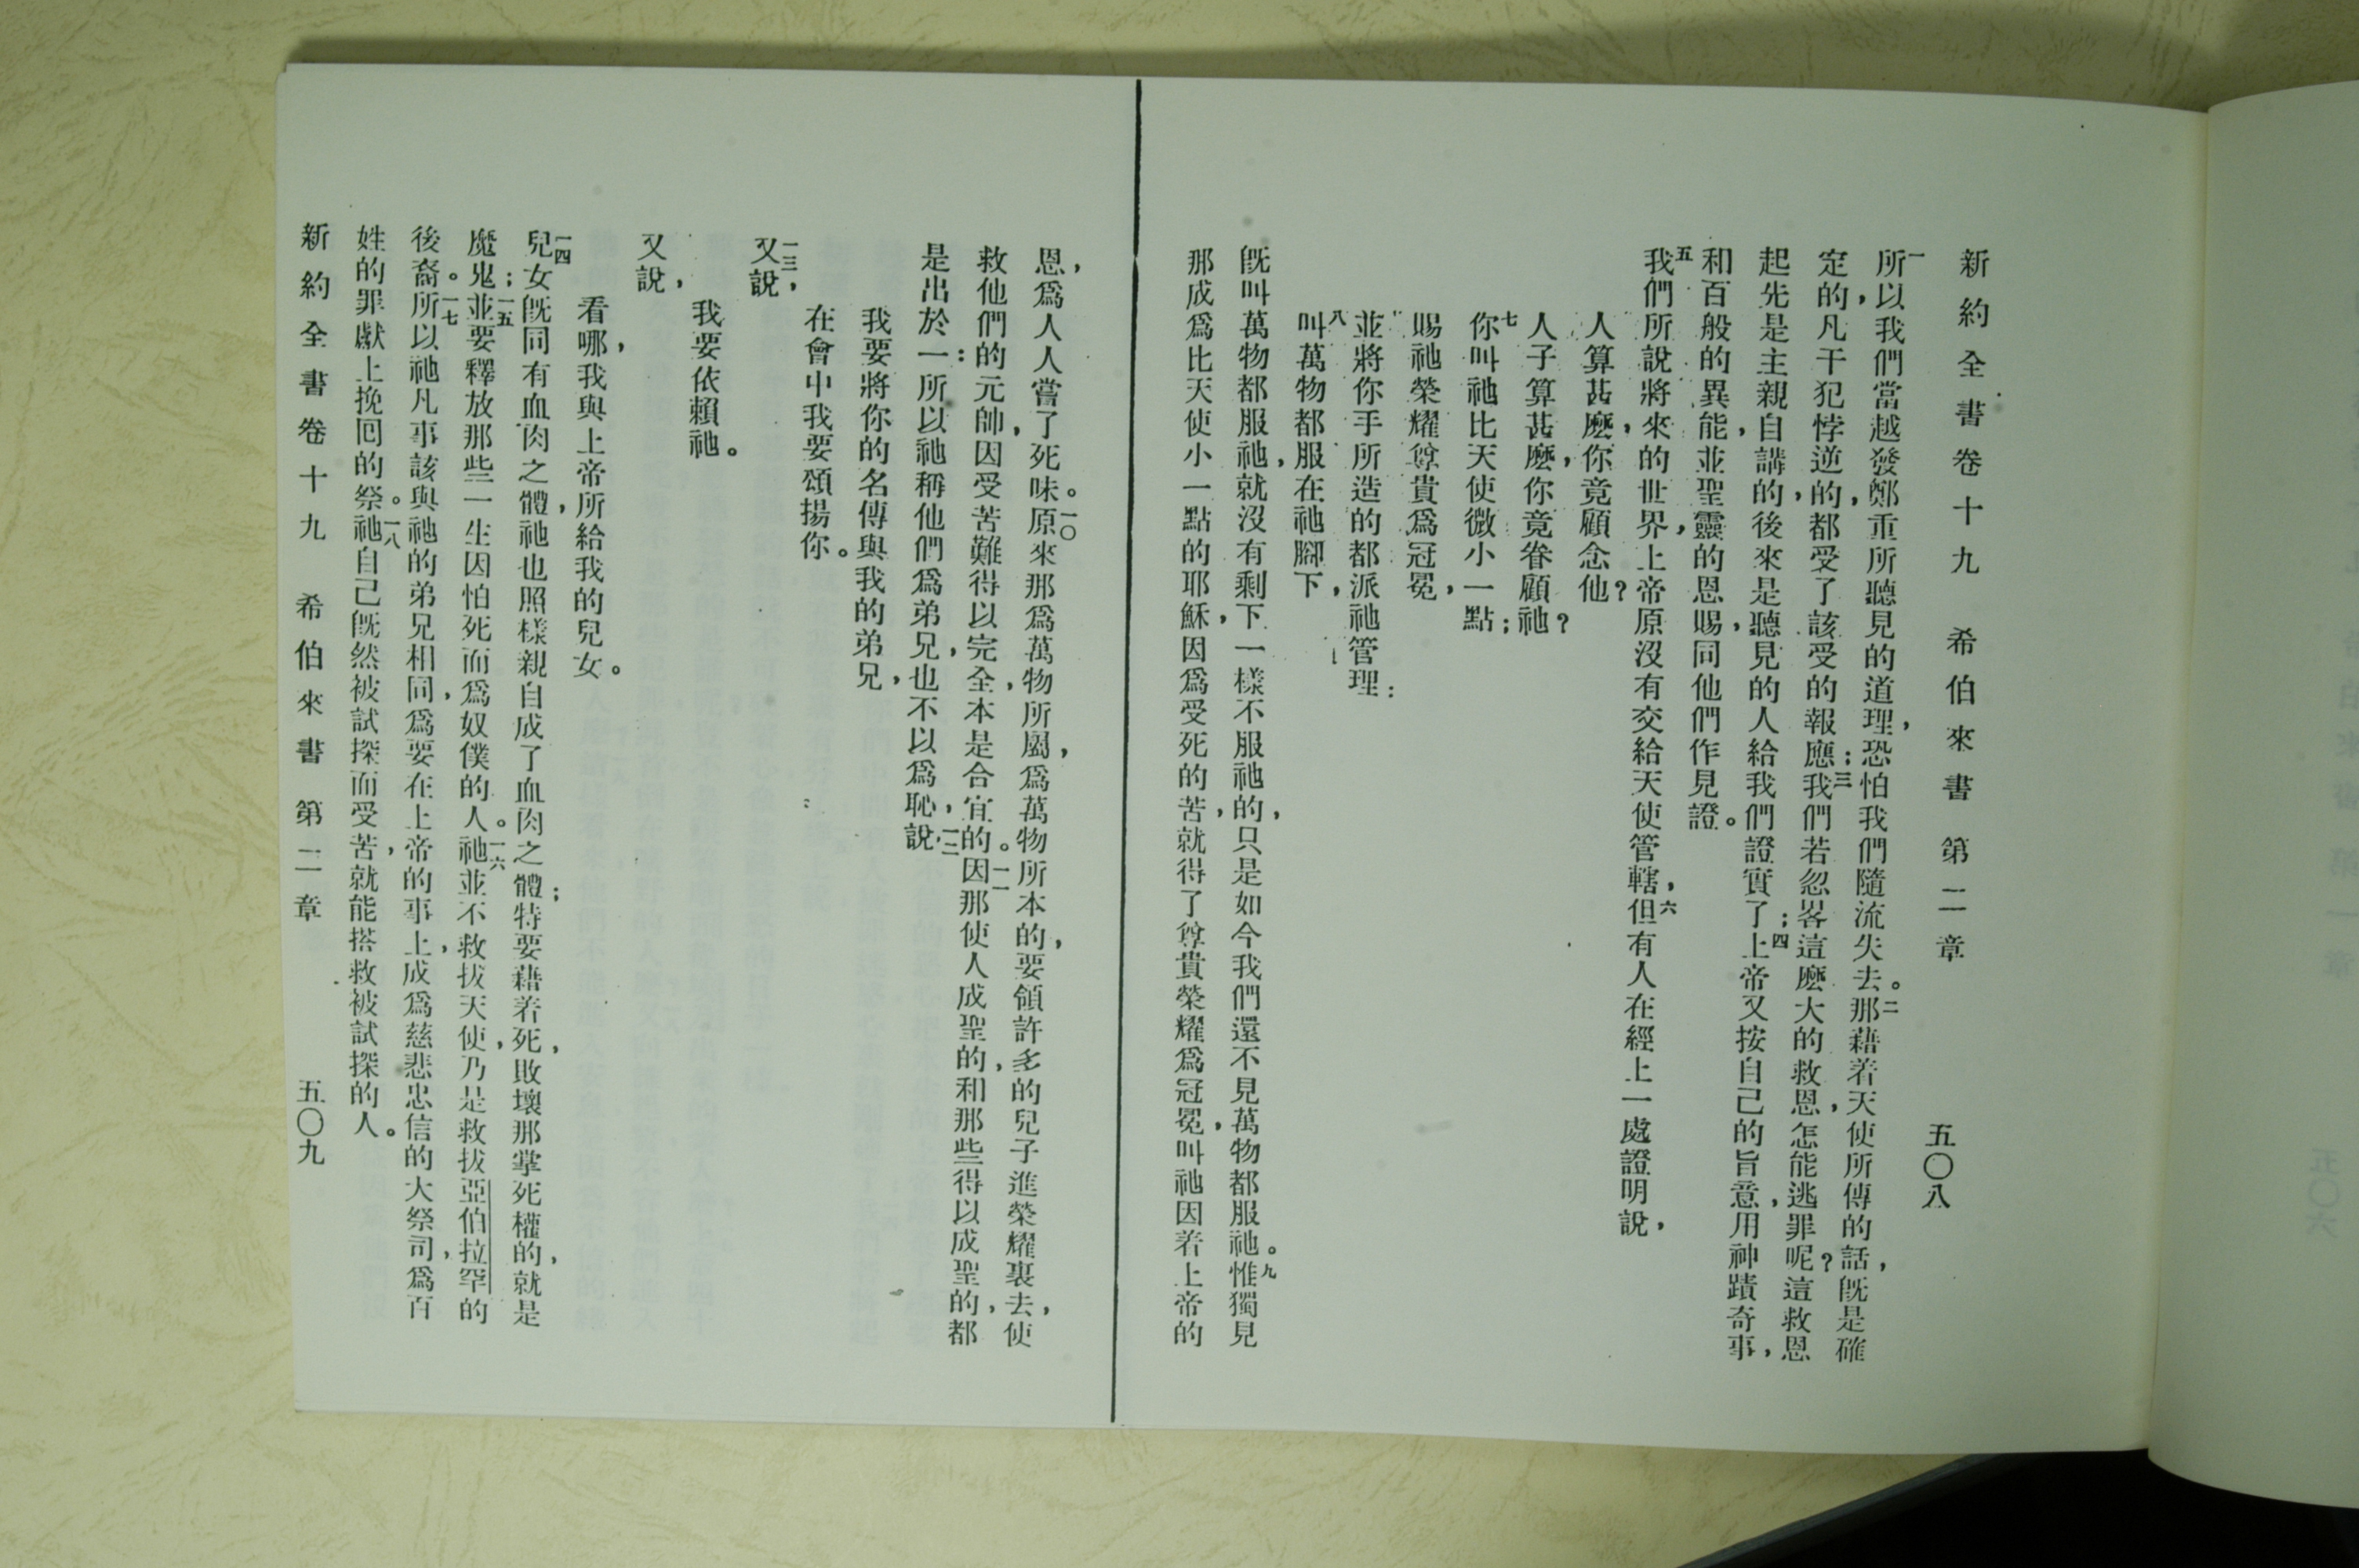 新約全書卷十九 希伯來書 第二章 五〇八
一所以我們當越發鄭重所聽見的道理,恐怕我們隨流失去。二那藉着天使所傳的話,旣是確
定的,凡干犯悖逆的,都受了該受的報應;三我們若忽畧這麼大的救恩,怎能逃罪呢?這救恩
起先是主親自講的,後來是聽見的人給我們證實了;四上帝又按自己的旨意,用神蹟奇事,
和百般的異能,並聖靈的恩賜,同他們作見證。
五我們所說將來的世界,上帝原沒有交給天使管轄,六但有人在經上一處證明說,
人算甚麼,你竟顧念他?
人子算甚麼,你竟眷顧祂?
七你叫祂比天使微小一點;
賜祂榮耀尊貴爲冠冕,
並將你手所造的都派祂管理:
八叫萬物都服在祂腳下,
旣叫萬物都服祂,就沒有剩下一樣不服祂的,只是如今我們還不見萬物都服祂。九惟獨見
那成爲比天使小一點的耶穌,因爲受死的苦,就得了尊貴榮耀爲冠冕,叫祂因着上帝的
恩,爲人人嘗了死味。一〇原來那爲萬物所屬,爲萬物所本的,要領許多的兒子進榮耀裏去,使
救他們的元帥,因受苦難得以完全,本是合宜的。一一因那使人成聖的,和那些得以成聖的,都
是出於一:所以祂稱他們爲弟兄,也不以爲恥,一二說,
我要將你的名傳與我的弟兄,
在會中我要頌揚你。
一三又說,
我要依賴祂。
又說,
看哪,我與上帝所給我的兒女。
一四兒女旣同有血肉之體,祂也照樣親自成了血肉之體;特要藉着死,敗壞那掌死權的,就是
魔鬼;一五並要釋放那些一生因怕死而爲奴僕的人。一六祂並不救拔天使,乃是救拔亞伯拉罕的
後裔。一七所以祂凡事該與祂的弟兄相同,爲要在上帝的事上,成爲慈悲忠信的大祭司,爲百
姓的罪獻上挽回的祭。一八祂自己旣然被試探而受苦,就能搭救被試探的人。
新約全書卷十九 希伯來書 第二章 五〇九